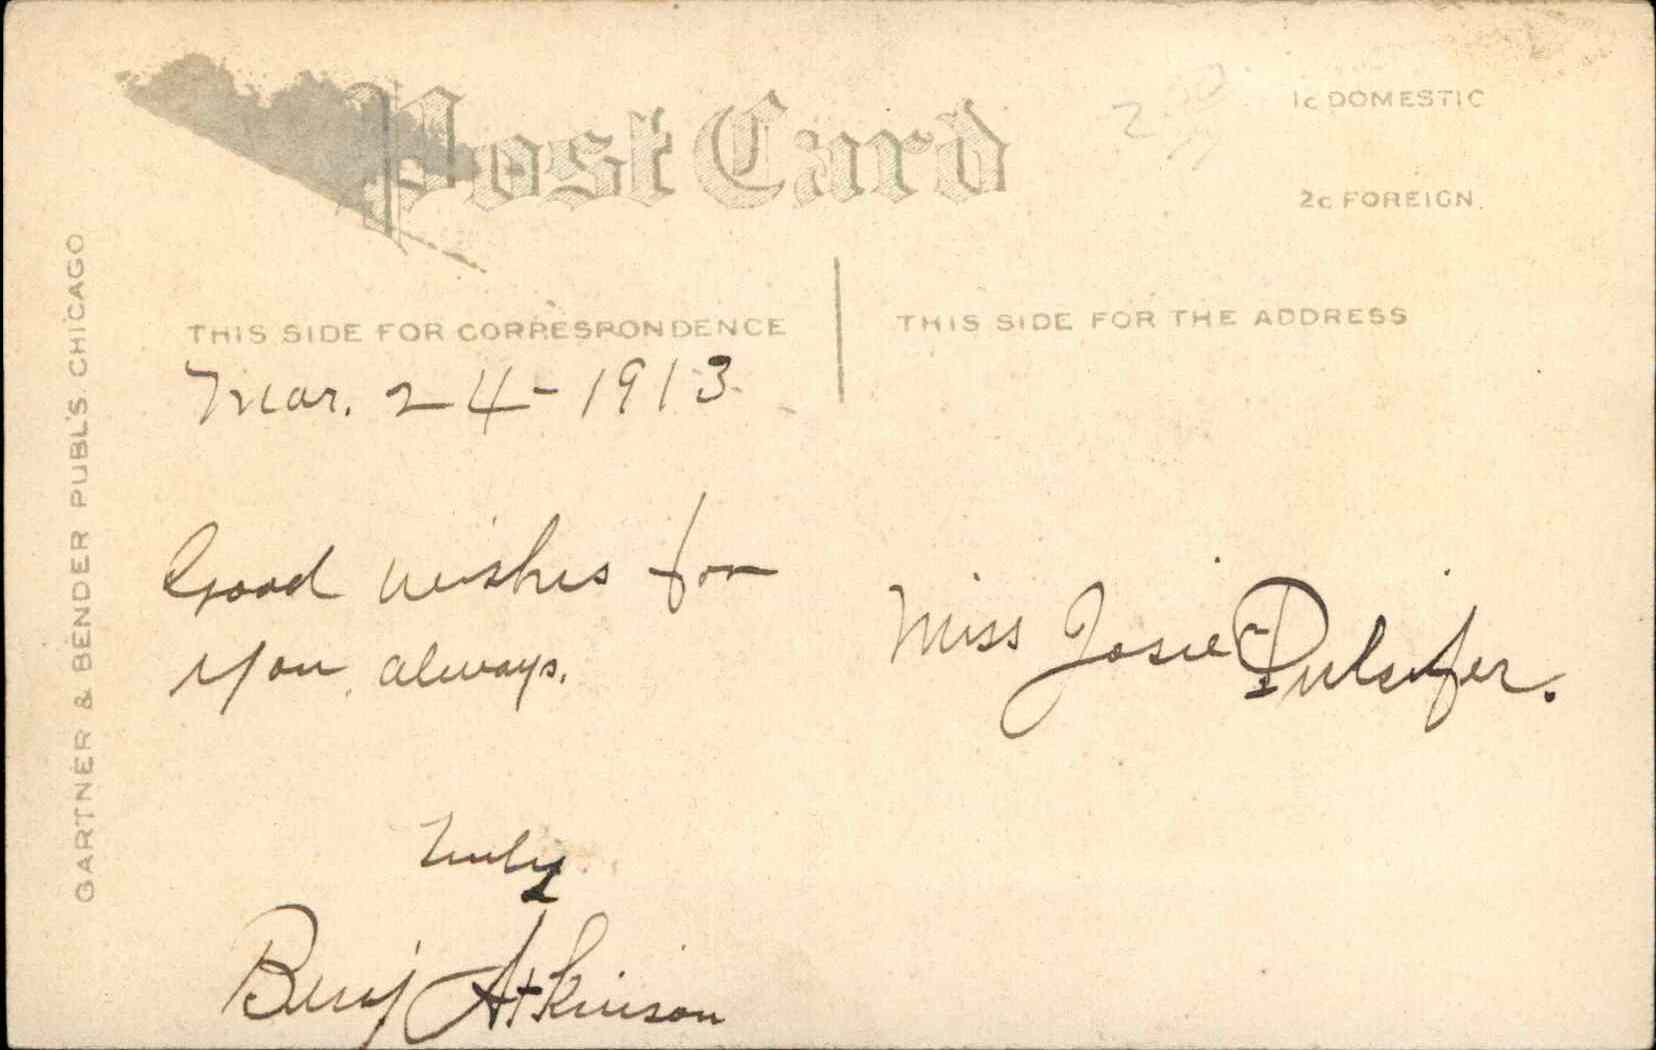 Post Card
1c DOMESTIC
2c FOREIGN.
GARTNER & BENDER PUBL'S. CHICAGO
THIS SIDE FOR CORRESPONDENCE
THIS SIDE FOR THE ADDRESS
Mar. 24-1913.
Good wishes for
you, always.
Miss Josie Pulsifer.
Truly
Benj Atkinson